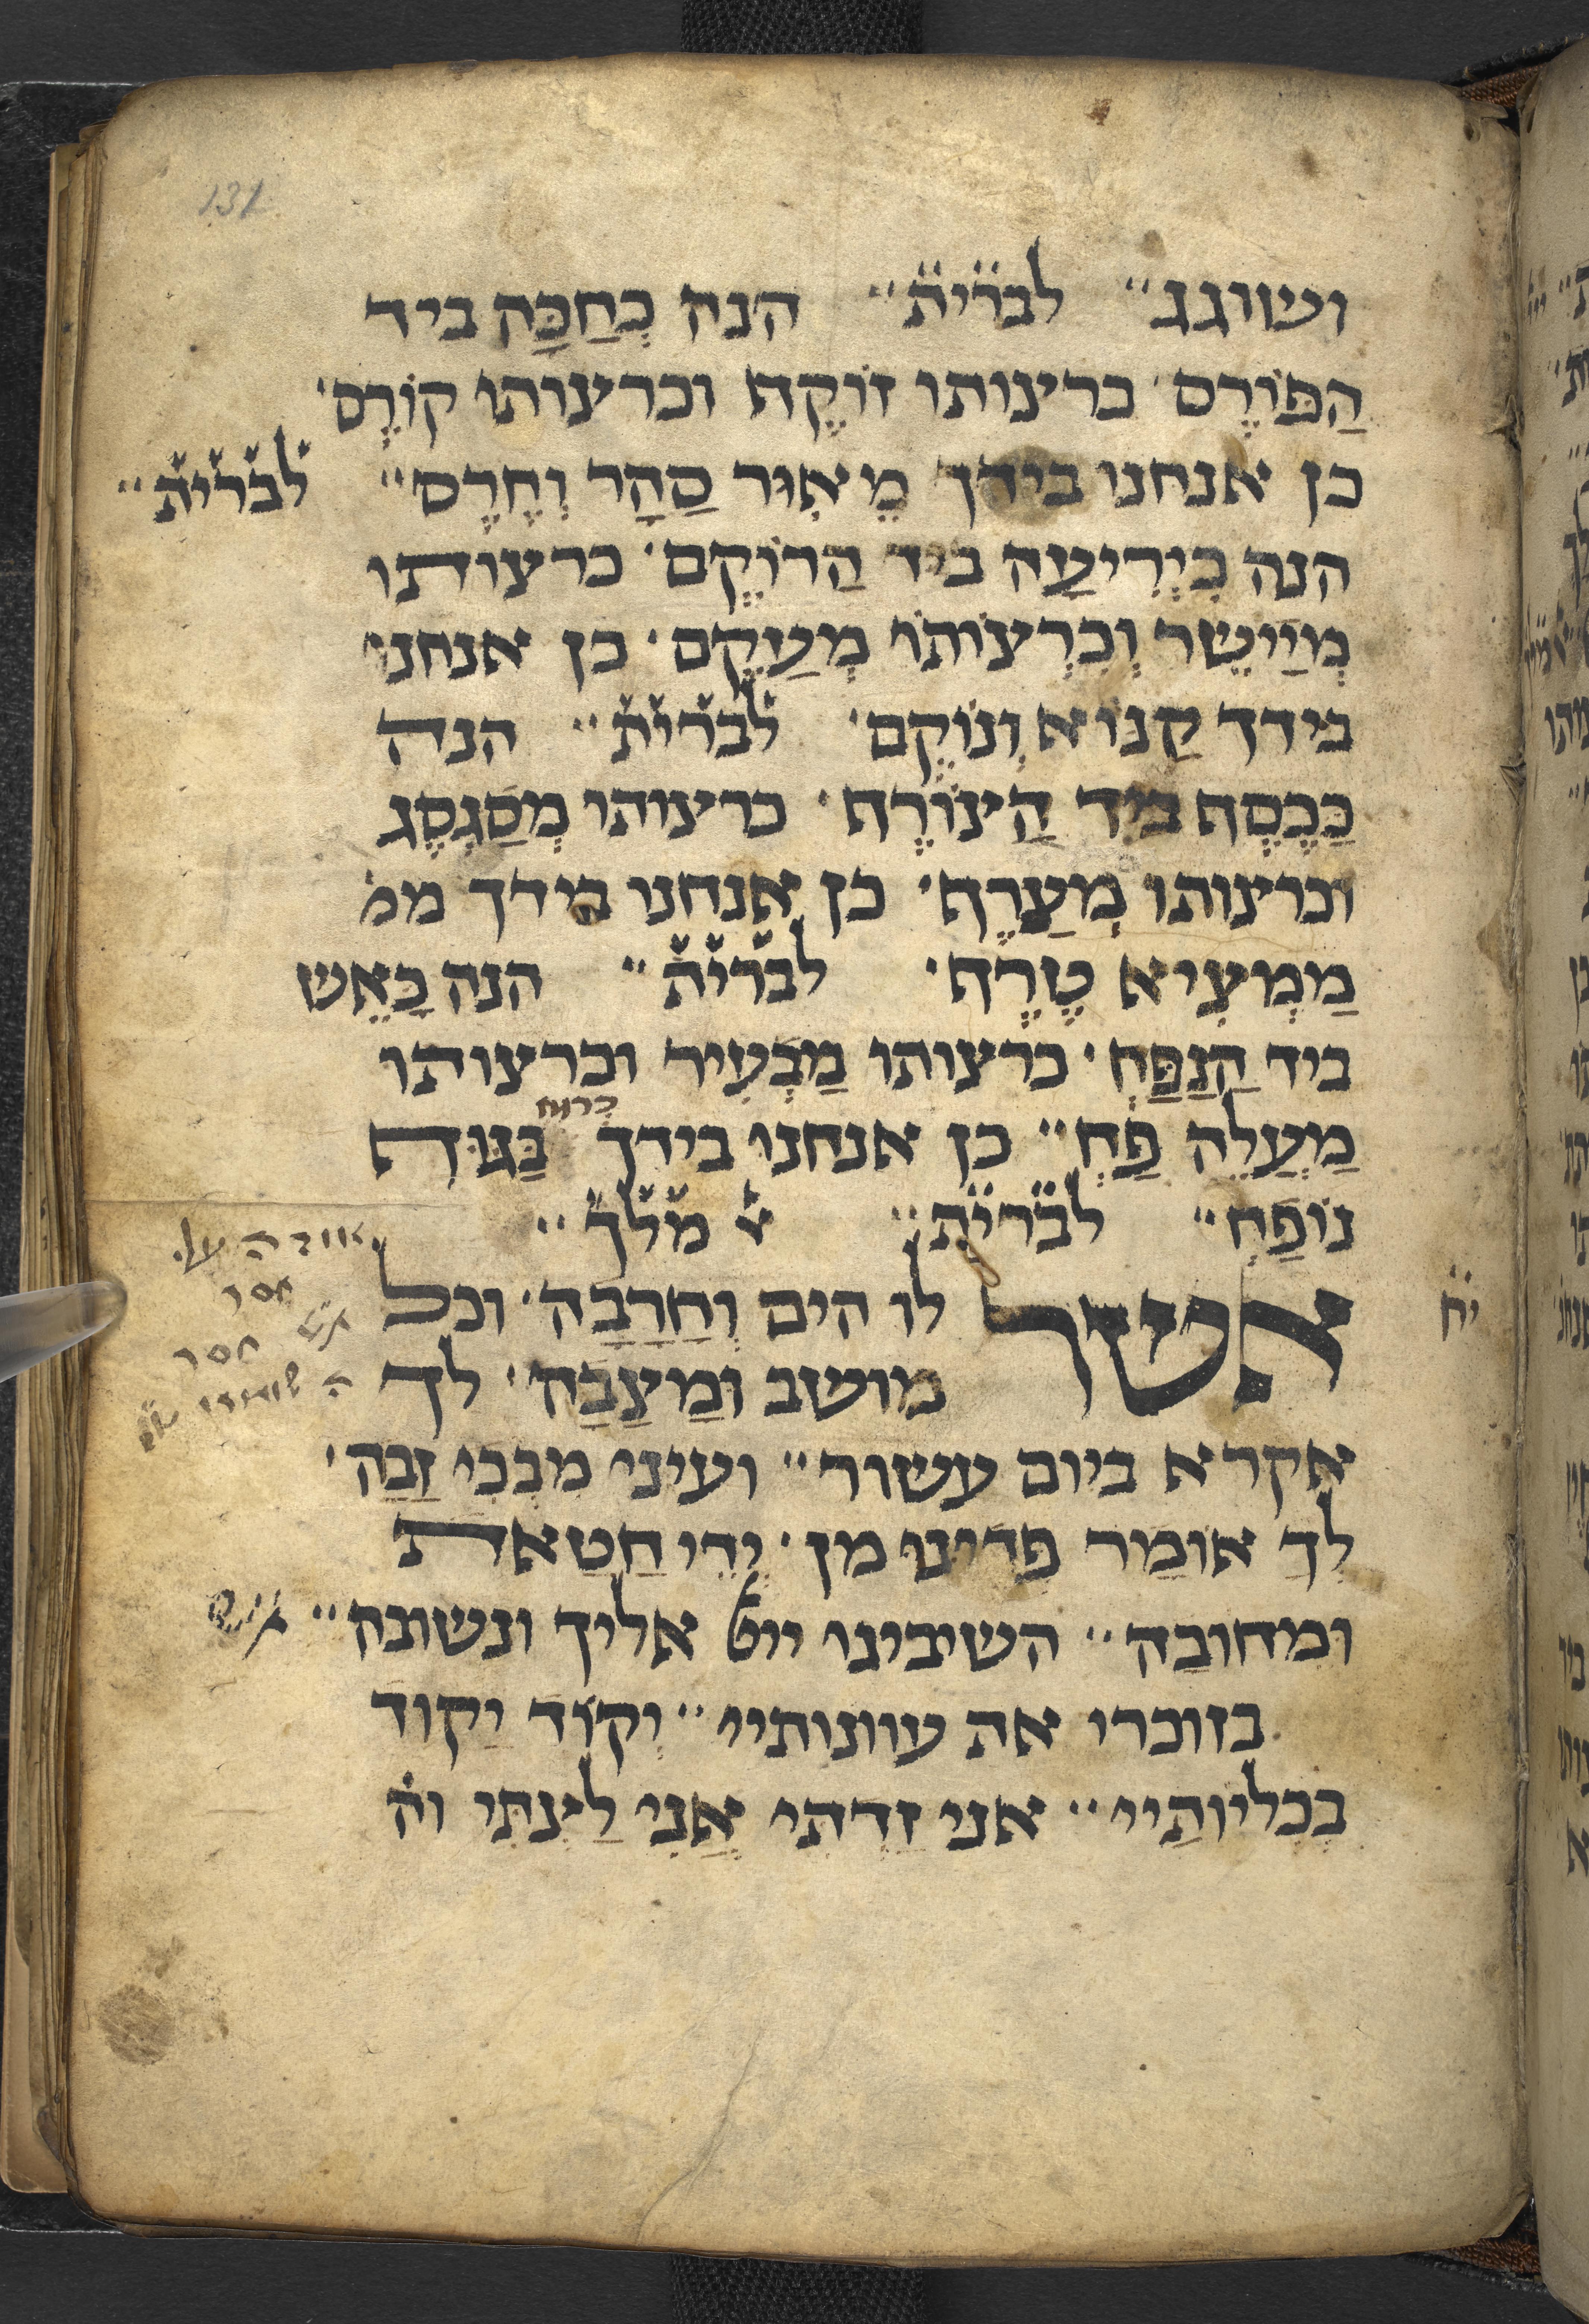 131
ושוגג׃ לברית׃ הנה כְחַבָּה ביד
הַפּוֹרֶס׳ כרצותו זוֹקֶה וכרצותו קוֹרֶס׳
כן אנחנו בידך מֵאִור סַהָר וְחֶרֶס׃ לברית׃
הנה כִיְרִיעַה ביד הַרוֹקֶם׳ כרצותו
מְיַישֵר וְכִרְצוֹתוֹ מְעַקֶם׳ כן אנחנו
בידך קַנוֹא וְנוֹקֶם׳ לברית׃ הנה
כַּכֶסֶף ביד הַצוֹרֶף׳ כרצותו מְסַגְסֶג
וכרצותו מְצַרֶף׳ כן אנחנו בידך ממ
מַמְצִיא טֶרֶף׳ לברית׃ הנה כָּאֵש
ביד הַנַפַּח׳ כרצותו מַבְעִיר וכרצותו
מַעֲלֶה פַח׃ כן אנחנו בידך בַּגוּף
נוֹפַח׃ לברית׃ א מלך׃
יח
אשר לו הים וְחַרָבָה׳ וכל
מושב וּמַצַבָה׳ לך
אקרא ביום עשור׃ ועיני מִבְכִי זַבָה׳
לְךָ אוֹמַר פַדינו מן׳ יְדֵי חַטַאת
ומחובה׃ השיבינו ייי אליך ונשובה׃
בזוכרי את עוונותיי׃ יְקוֹד יַקוד
בְכִליוֹתַיי׃ אני זַדְתִי אֲנִי לַצְתִי וה